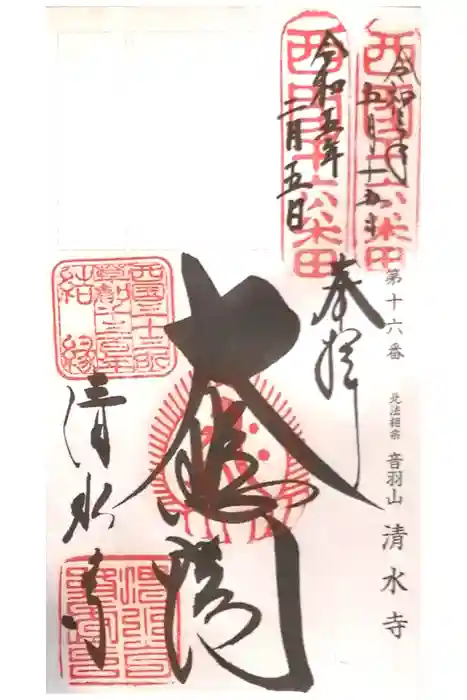 西國十六番
西國十六番
令和五年
二月五日
奉拝
第十六番
北法相宗 音羽山 清水寺
大悲閣
西国三十三所
草創千三百年
結縁
清水寺